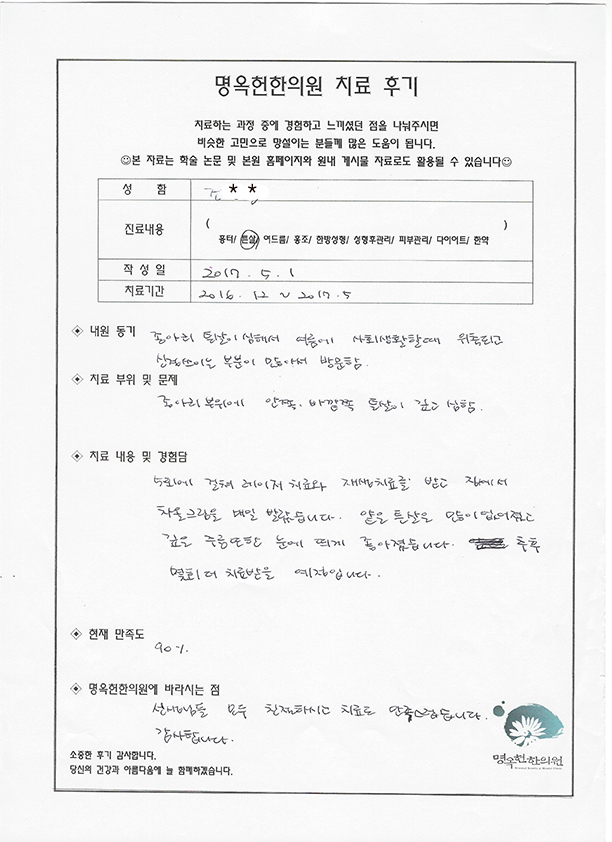 명옥헌한의원 치료 후기
치료하는 과정 중에 경험하고 느끼셨던 점을 나눠주시면
비슷한 고민으로 망설이는 분들께 많은 도움이 됩니다.
☺본 자료는 학술 논문 및 본원 홈페이지와 원내 게시물 자료로도 활용될 수 있습니다☺
성 함 조 * *
진료내용 ( )
흉터/ 튼살/ 여드름/ 홍조/ 한방성형/ 성형후관리/ 피부관리/ 다이어트/ 한약
작 성 일 2017. 5. 1
치료기간 2016. 12 ~ 2017. 5
◈ 내원 동기 종아리 튼살이 심해서 여름에 사회생활할때 위축되고
신경쓰이는 부분이 많아서 방문함.
◈ 치료 부위 및 문제
종아리부위에 안쪽, 바깥쪽 튼살이 깊고 심함.
◈ 치료 내용 및 경험담
5회에 걸쳐 레이저 치료와 재생치료를 받고 집에서
차올크림을 매일 발랐습니다. 얕은 튼살은 많이 없어졌고
깊은 주름또한 눈에 띄게 좋아졌습니다. 추후
몇회 더 치료받을 예정입니다.
◈ 현재 만족도
90%
◈ 명옥헌한의원에 바라시는 점
선생님들 모두 친절하시고 치료도 만족스럽습니다.
감사합니다.
소중한 후기 감사합니다.
당신의 건강과 아름다움에 늘 함께하겠습니다.
명옥헌한의원